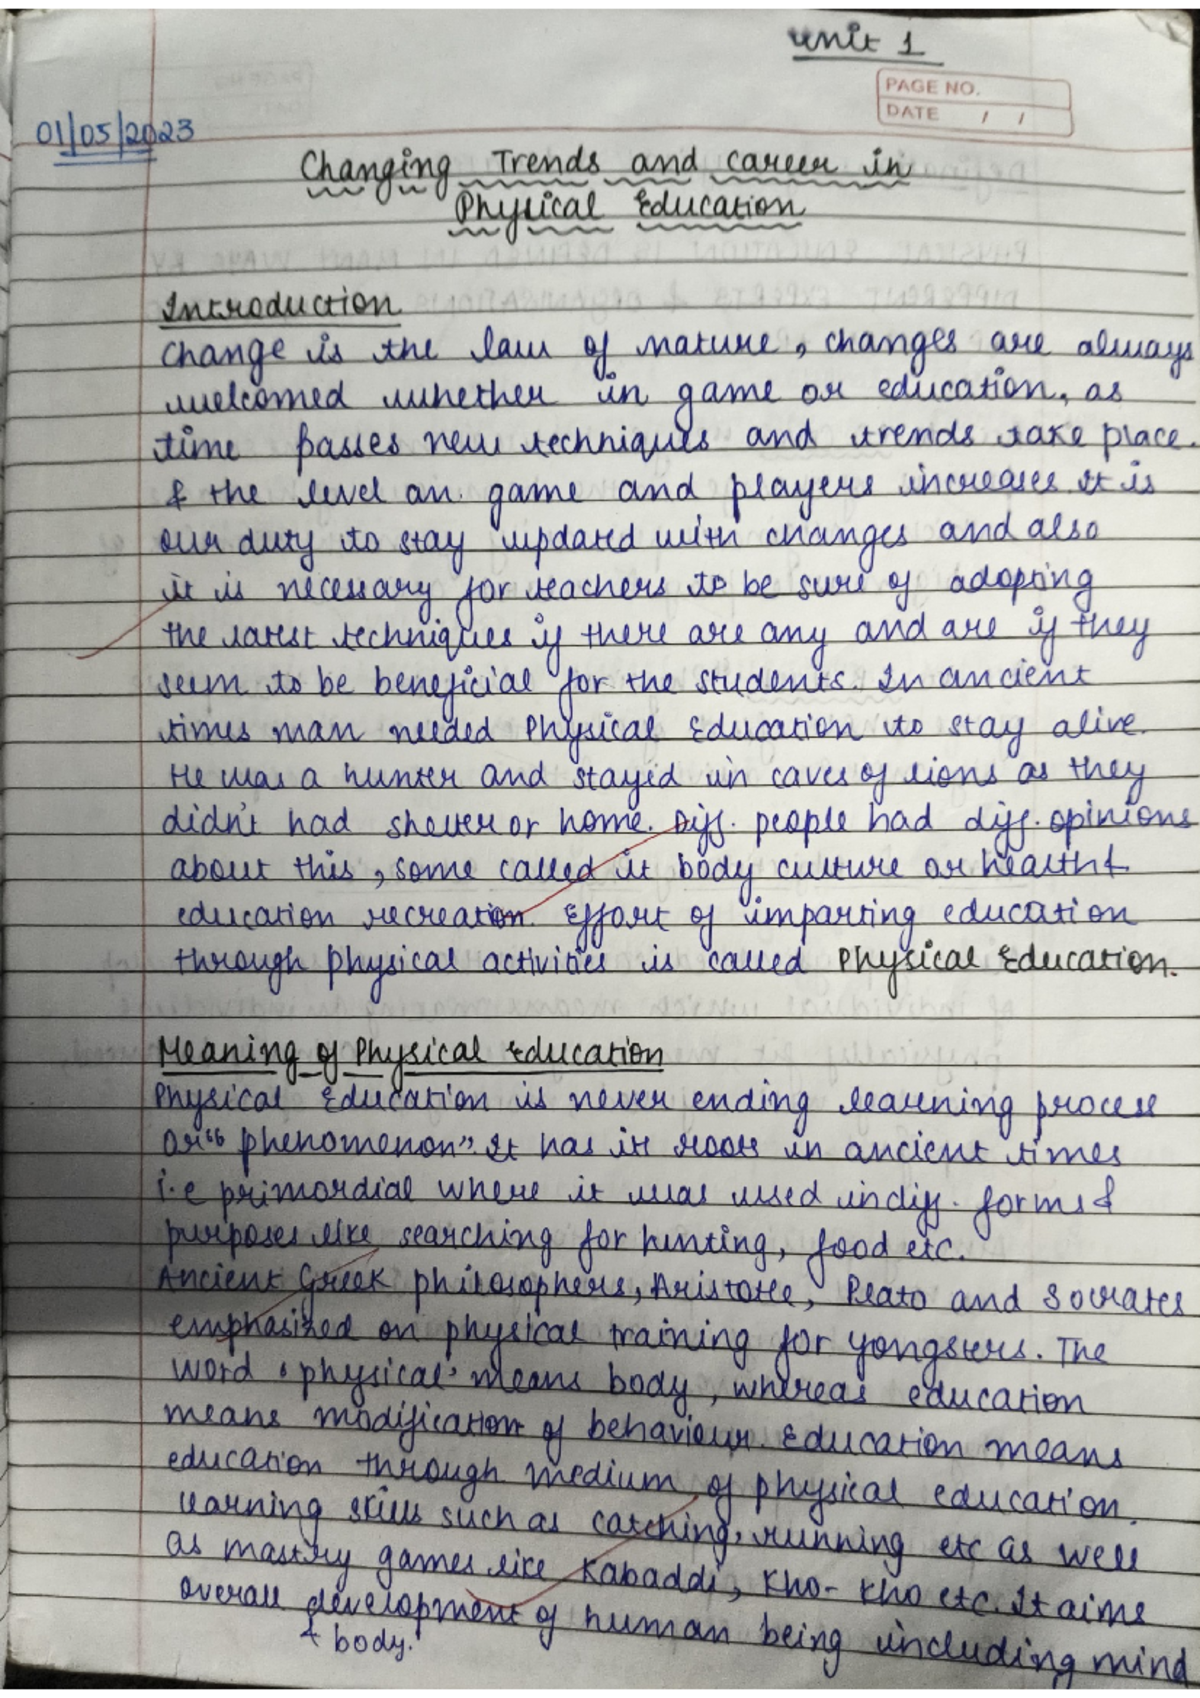 Unit 1
PAGE NO.
DATE / /
01/05/2023
Changing Trends and career in
Physical Education
Introduction
Change is the law of nature, changes are always
welcomed whether in game or education, as
time passes new techniques and trends take place.
& the level an game and players increases. It is
our duty to stay updated with changes and also
it is necessary for teachers to be sure of adopting
the latest techniques if there are any and are if they
seem to be beneficial for the students. In ancient
times man needed Physical Education to stay alive.
He was a hunter and stayed in caves of lions as they
didn't had shelter or home. Diff. people had diff. opinions
about this, some called it body culture or health &
education recreation. Effort of imparting education
through physical activities is called Physical Education.
Meaning of Physical Education
Physical Education is never ending learning process
or "phenomenon". It has it roots in ancient times
i.e primordial where it was used in diff. forms &
purposes like searching for hunting, food etc.
Ancient Greek philosophers, Aristotle, Plato and Socrates
emphasized on physical training for yongsters. The
word 'physical' means body, whereas education
means modification of behaviour. Education means
education through medium of physical education.
learning skills such as catching, running etc as well
as mastry games like Kabaddi, Kho-Kho etc. It aims
overall development of human being including mind
& body.